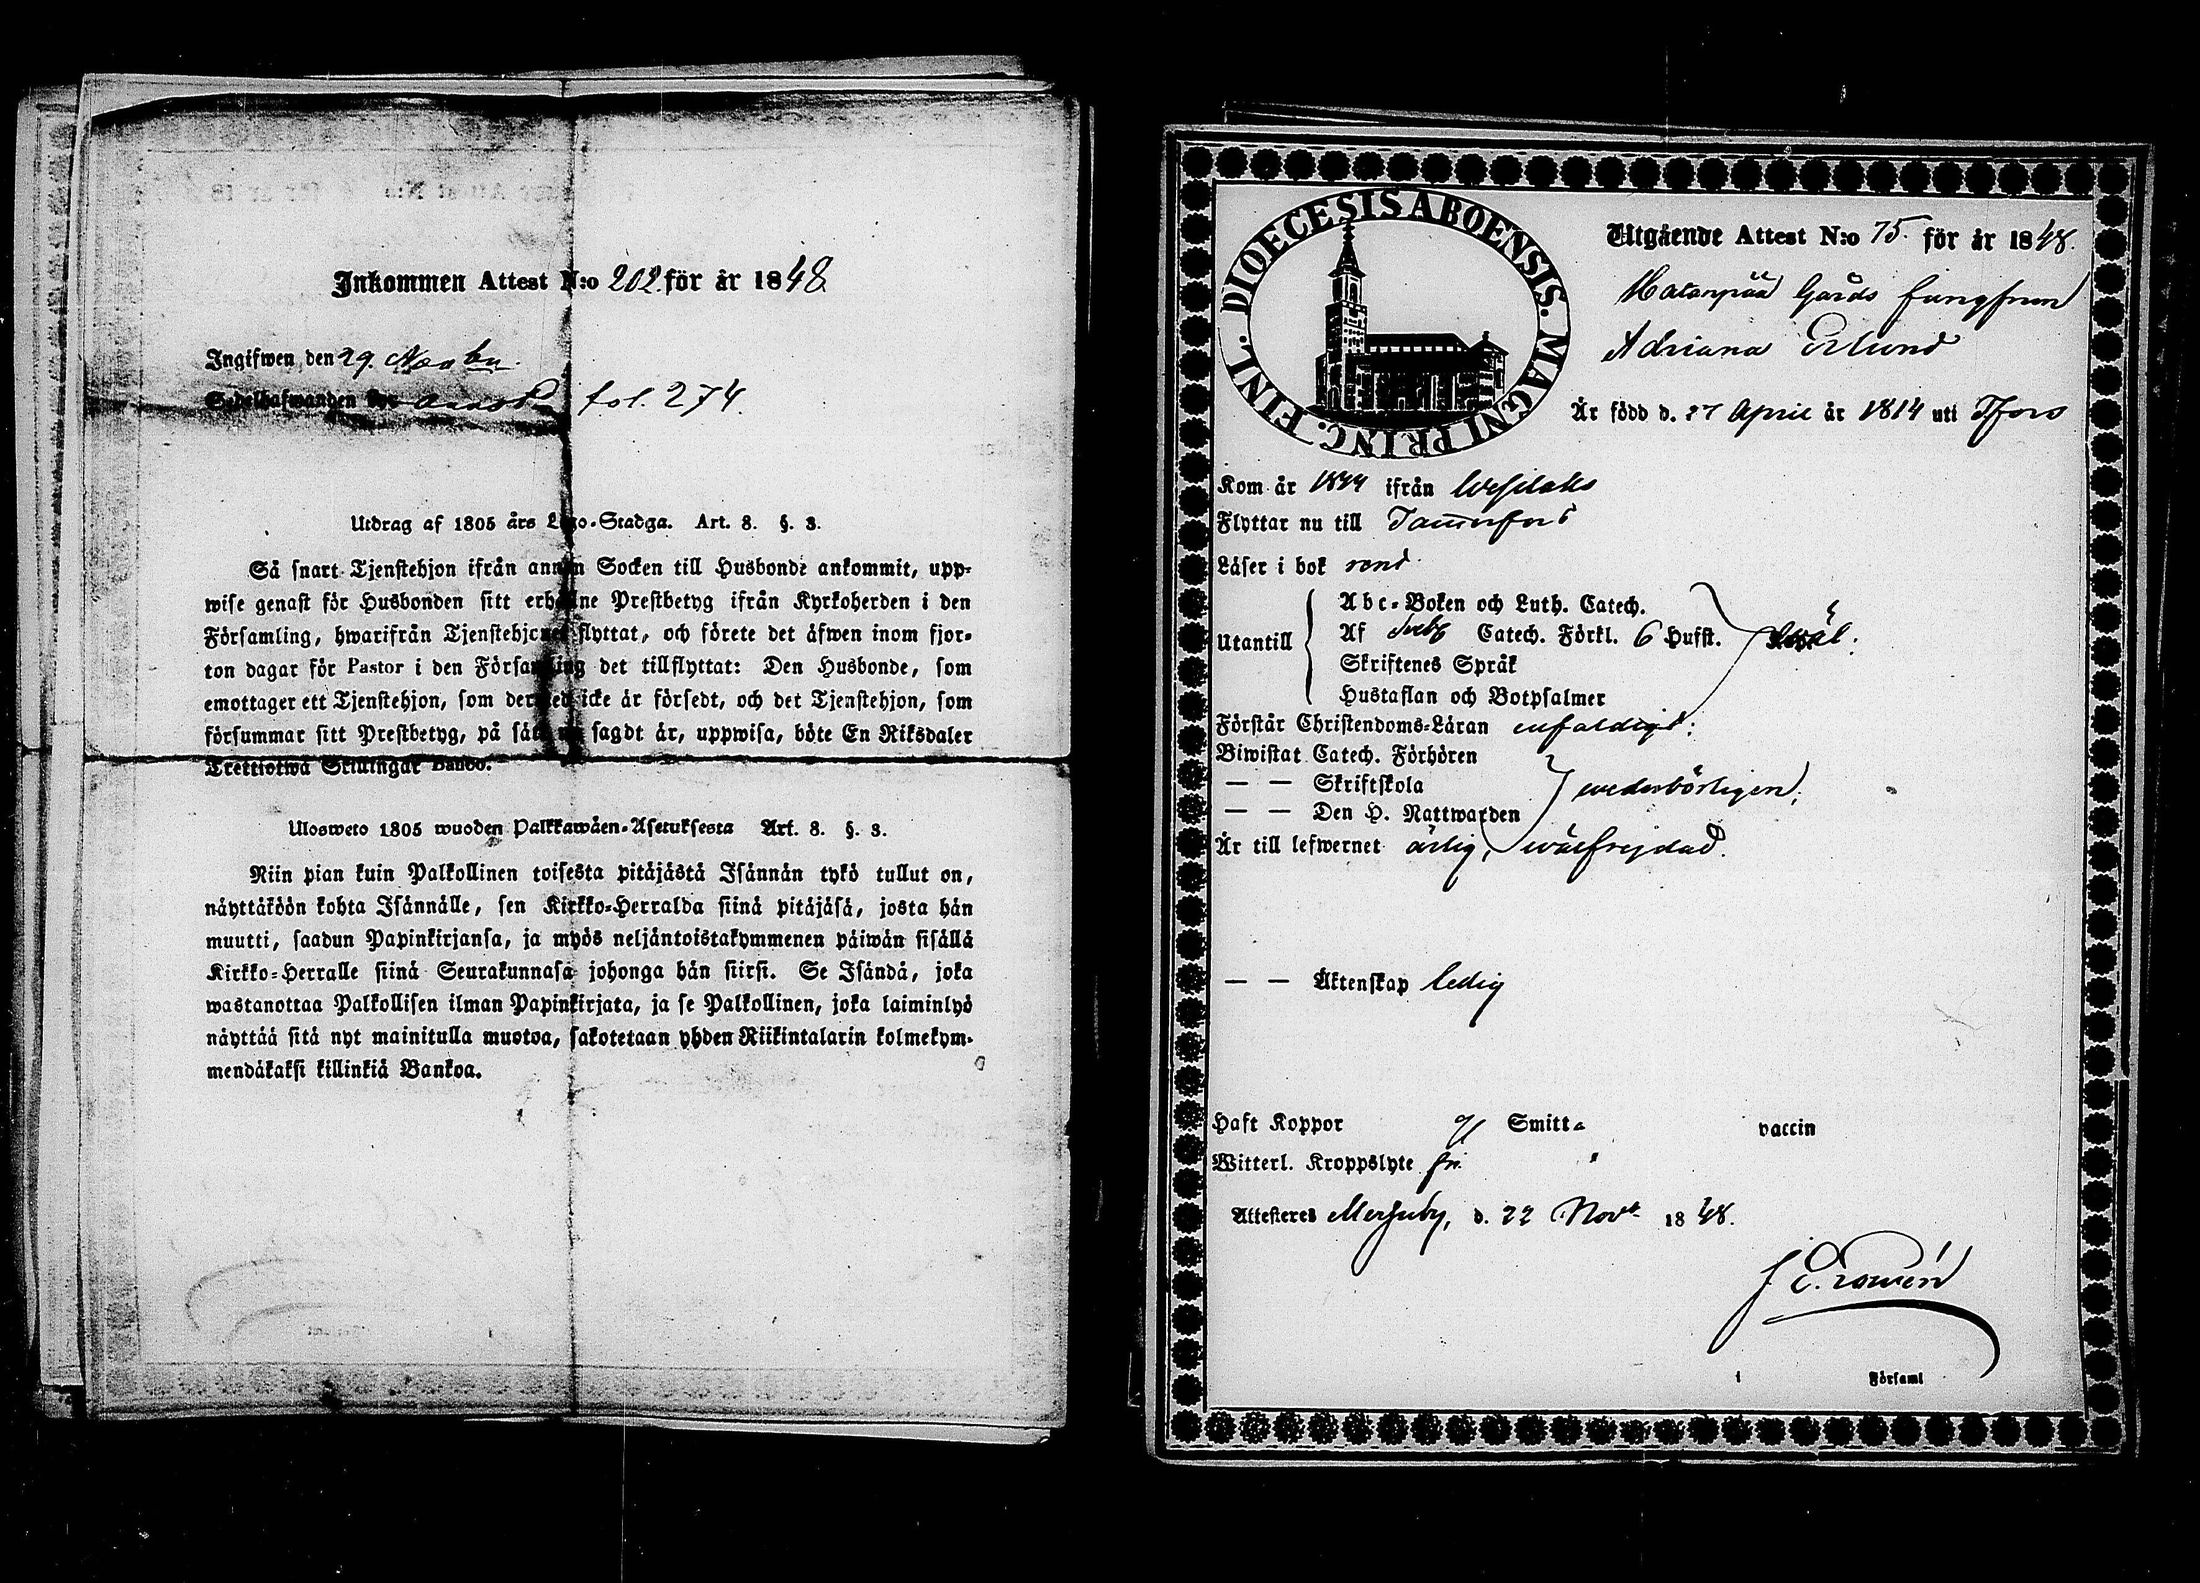 Inkommen Attest N:o 202 för år 1848
Ingifwen den 29. Novbr.
fol. 274.
Utdrag af 1805 års Lego-Stadga. Art. 8. §. 3.
Så snart Tjenstehjon ifrån annan Socken till Husbonde ankommit, upp-
wise genast för Husbonden sitt erhållne Prestbetyg ifrån Kyrkoherden i den
Församling, hwarifrån Tjenstehjonet flyttat, och förete det äfwen inom fjor-
ton dagar för Pastor i den Församling det tillflyttat: Den Husbonde, som
emottager ett Tjenstehjon, som dermed icke är försedt, och det Tjenstehjon, som
försummar sitt Prestbetyg, på sätt nu sagdt är, uppwisa, böte En Riksdaler
Trettiotwå Skillingar Banco.
Ulosweto 1805 wuoden Palkkawäen-Asetuksesta Art. 8. §. 3.
Niin pian kuin Palkollinen toisesta pitäjästä Isännän tykö tullut on,
näyttäköön kohta Isännälle, sen Kirkko-Herralda siinä pitäjäsä, josta hän
muutti, saadun Papinkirjansa, ja myös neljäntoistakymmenen päiwän sisällä
Kirkko-Herralle siinä Seurakunnasa johonga hän siirsi. Se Isändä, joka
wastanottaa Palkollisen ilman Papinkirjata, ja se Palkollinen, joka laiminlyö
näyttää sitä nyt mainitulla muotoa, sakotetaan yhden Riikintalarin kolmekym-
mendäkaksi killinkiä Bankoa.
DIOECESIS ABOENSIS. MAGNI PRINC. FINL.
Utgående Attest N:o 75. för år 1848.
Hatanpää Gårds Jungfrun
Adriana Erlund
Är född d. 27 April år 1814 uti Tfors
Kom år 1844 ifrån Wesilaks
Flyttar nu till Tammerfors
Läser i bok rent
Utantill
Abc-Boken och Luth. Catech.
Af Sveb Catech. Förkl. 6 Hufst. wäl:
Skriftenes Språk
Hustaflan och Botpsalmer
Förstår Christendoms-Läran enfaldigt:
Biwistat Catech. Förhören
— — Skriftskola wederbörligen;
— — Den H. Nattwarden
Är till lefwernet ärlig, wälfrejdad.
— — Äktenskap ledig
Haft Koppor Smitta vaccin
Witterl. Kroppslyte fri
Attesteras Messuby, d. 22 Novbr 1848.
i Församl